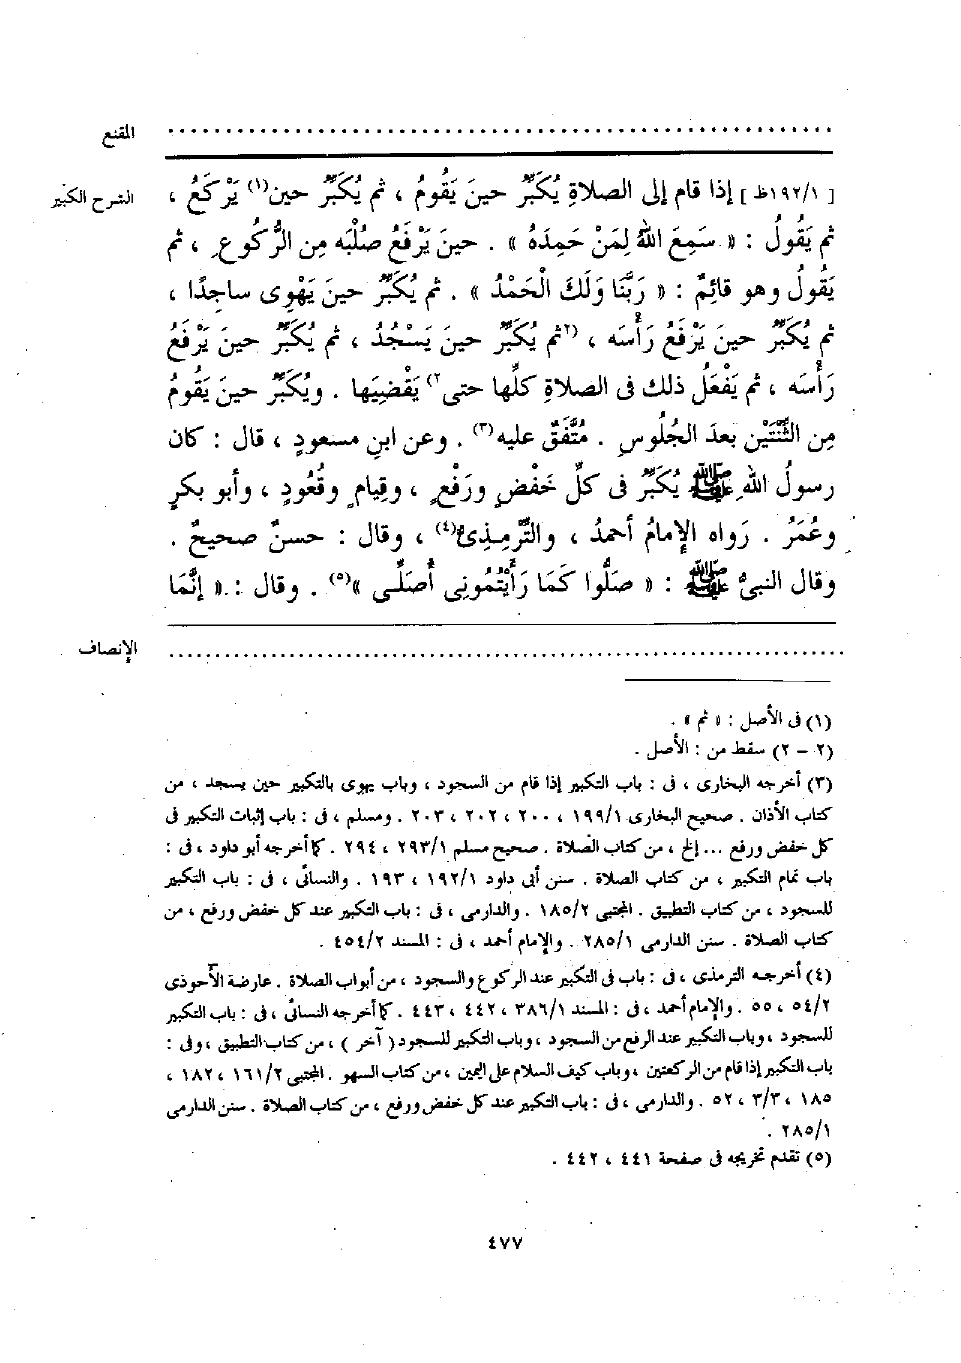 المقنع
[ ١٩٢/١ظ ] إذا قام إلى الصلاةِ يُكَبِّرُ حينَ يَقُومُ ، ثم يُكَبِّرُ حين(١) يَرْكَعُ ،
الشرح الكبير
ثم يَقُولُ : « سَمِعَ اللهُ لِمَنْ حَمِدَهُ » . حينَ يَرْفَعُ صُلْبَه مِن الرُّكُوعِ ، ثم
يَقُولُ وهو قائِمٌ : « رَبَّنَا وَلَكَ الْحَمْدُ » . ثم يُكَبِّرُ حينَ يَهْوِى ساجِدًا ،
ثم يُكَبِّرُ حينَ يَرْفَعُ رَأْسَه ، (٢ثم يُكَبِّرُ حينَ يَسْجُدُ ، ثم يُكَبِّرُ حينَ يَرْفَعُ
رَأْسَه ، ثم يَفْعَلُ ذلك فى الصلاةِ كلِّها حتى٢) يَقْضِيَها . ويُكَبِّرُ حينَ يَقُومُ
مِن الثِّنْتَيْن بعدَ الجُلُوسِ . مُتَّفَقٌ عليه(٣) . وعن ابنِ مسعودٍ ، قال : كان
رسولُ اللهِ ﷺ يُكَبِّرُ فى كلِّ خَفْضٍ ورَفْعٍ ، وقِيامٍ وقُعودٍ ، وأبو بكرٍ
وعُمَرُ . رَواه الإمامُ أحمدُ ، والتِّرْمِذِىُّ(٤) ، وقال : حسنٌ صحيحٌ .
وقال النبىُّ ﷺ : « صَلُّوا كَمَا رَأَيْتُمُونِى أُصَلِّى »(٥) . وقال : « إنَّمَا
الإنصاف
(١) فى الأصل : « ثم » .
(٢ - ٢) سقط من : الأصل .
(٣) أخرجه البخارى ، فى : باب التكبير إذا قام من السجود ، وباب يهوى بالتكبير حين يسجد ، من
كتاب الأذان . صحيح البخارى ١٩٩/١ ، ٢٠٠ ، ٢٠٢ ، ٢٠٣ . ومسلم ، فى : باب إثبات التكبير فى
كل خفض ورفع ... إلخ ، من كتاب الصلاة . صحيح مسلم ٢٩٣/١ ، ٢٩٤ . كما أخرجه أبو داود ، فى :
باب تمام التكبير ، من كتاب الصلاة . سنن أبى داود ١٩٢/١ ، ١٩٣ . والنسائى ، فى : باب التكبير
للسجود ، من كتاب التطبيق . المجتبى ١٨٥/٢ . والدارمى ، فى : باب التكبير عند كل خفض ورفع ، من
كتاب الصلاة . سنن الدارمى ٢٨٥/١ . والإمام أحمد ، فى : المسند ٤٥٤/٢ .
(٤) أخرجه الترمذى ، فى : باب فى التكبير عند الركوع والسجود ، من أبواب الصلاة . عارضة الأحوذى
٥٤/٢ ، ٥٥ . والإمام أحمد ، فى : المسند ٣٨٦/١ ، ٤٤٢ ، ٤٤٣ . كما أخرجه النسائى ، فى : باب التكبير
للسجود ، وباب التكبير عند الرفع من السجود ، وباب التكبير للسجود ( آخر ) ، من كتاب التطبيق ، وفى :
باب التكبير إذا قام من الركعتين ، وباب كيف السلام على اليمين ، من كتاب السهو . المجتبى ١٦١/٢ ، ١٨٢ ،
١٨٥ ، ٣/٣ ، ٥٢ . والدارمى ، فى : باب التكبير عند كل خفض ورفع ، من كتاب الصلاة . سنن الدارمى
٢٨٥/١ .
(٥) تقدم تخريجه فى صفحة ٤٤١ ، ٤٤٢ .
٤٧٧